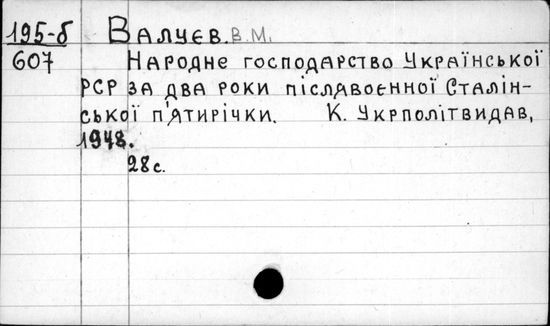 195-б Валуєв. В.М.
607 Народне господарство Української
РСР за два роки післявоєнної Сталін-
ської п'ятирічки. К. Укрполітвидав,
1948.
28с.